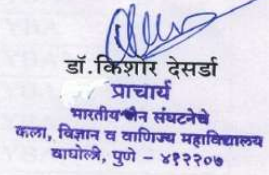 डॉ.किशोर देसर्डा
प्राचार्य
भारतीय जैन संघटनेचे
कला, विज्ञान व वाणिज्य महाविद्यालय
वाघोली, पुणे – ४१२२०७